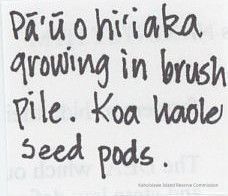 Pā'ū o hi'iaka
growing in brush
pile. Koa haole
seed pods.
Kahoolawe Island Reserve Commission